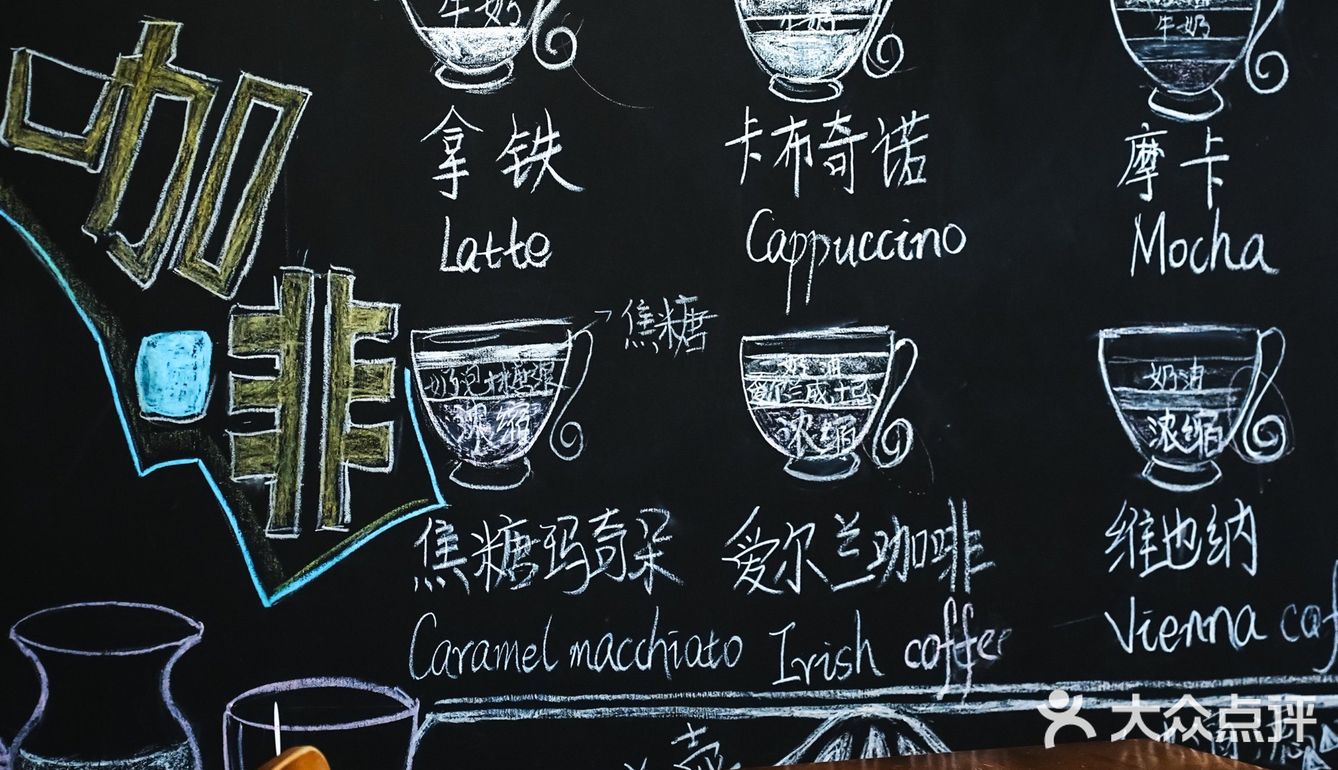 咖啡
牛奶
牛奶
牛奶
拿铁
卡布奇诺
摩卡
Latte
Cappuccino
Mocha
焦糖
浓缩
奶油
爱尔兰威士忌
浓缩
奶油
浓缩
焦糖玛奇朵
爱尔兰咖啡
维也纳
Caramel macchiato
Irish coffee
Vienna cof
壶
大众点评